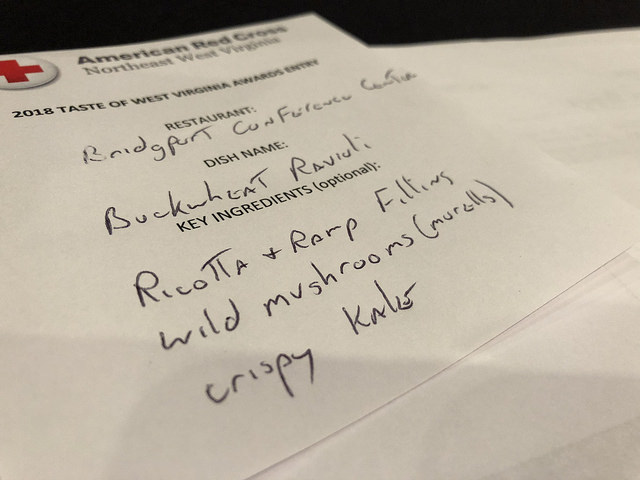 American Red Cross
Northeast West Virginia
2018 TASTE OF WEST VIRGINIA AWARDS ENTRY
RESTAURANT:
Bridgport Conference Center
DISH NAME:
Buckwheat Ravioli
KEY INGREDIENTS (optional):
Ricotta + Ramp Filling
wild mushrooms (morells)
crispy Kale